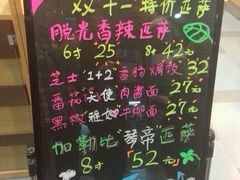 双十一特价匹萨
脱光香辣匹萨
6寸 25 8寸 42元
芝士"1+2"香肠焗饭 32
番茄"天使"肉酱面 27元
黑椒 牛柳面 27元
加勒比 匹萨
8寸 52元